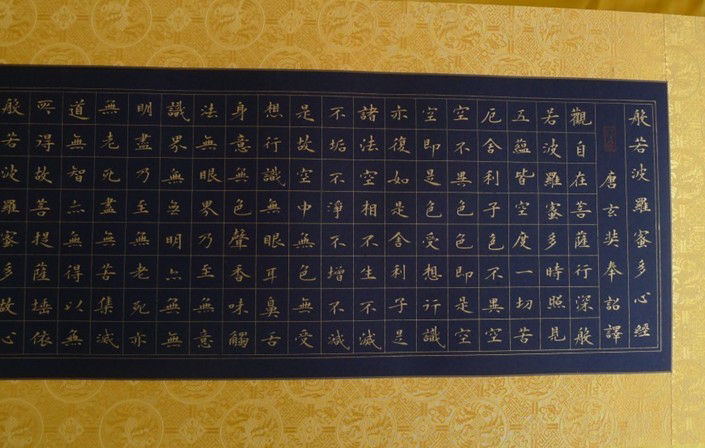 般若波羅蜜多心經
唐玄奘奉詔譯
觀自在菩薩行深般
若波羅蜜多時照見
五蘊皆空度一切苦
厄舍利子色不異空
空不異色色即是空
空即是色受想行識
亦復如是舍利子是
諸法空相不生不滅
不垢不淨不增不減
是故空中無色無受
想行識無眼耳鼻舌
身意無色聲香味觸
法無眼界乃至無意
識界無無明亦無無
明盡乃至無老死亦
無老死盡無苦集滅
道無智亦無得以無
所得故菩提薩埵依
般若波羅蜜多故心